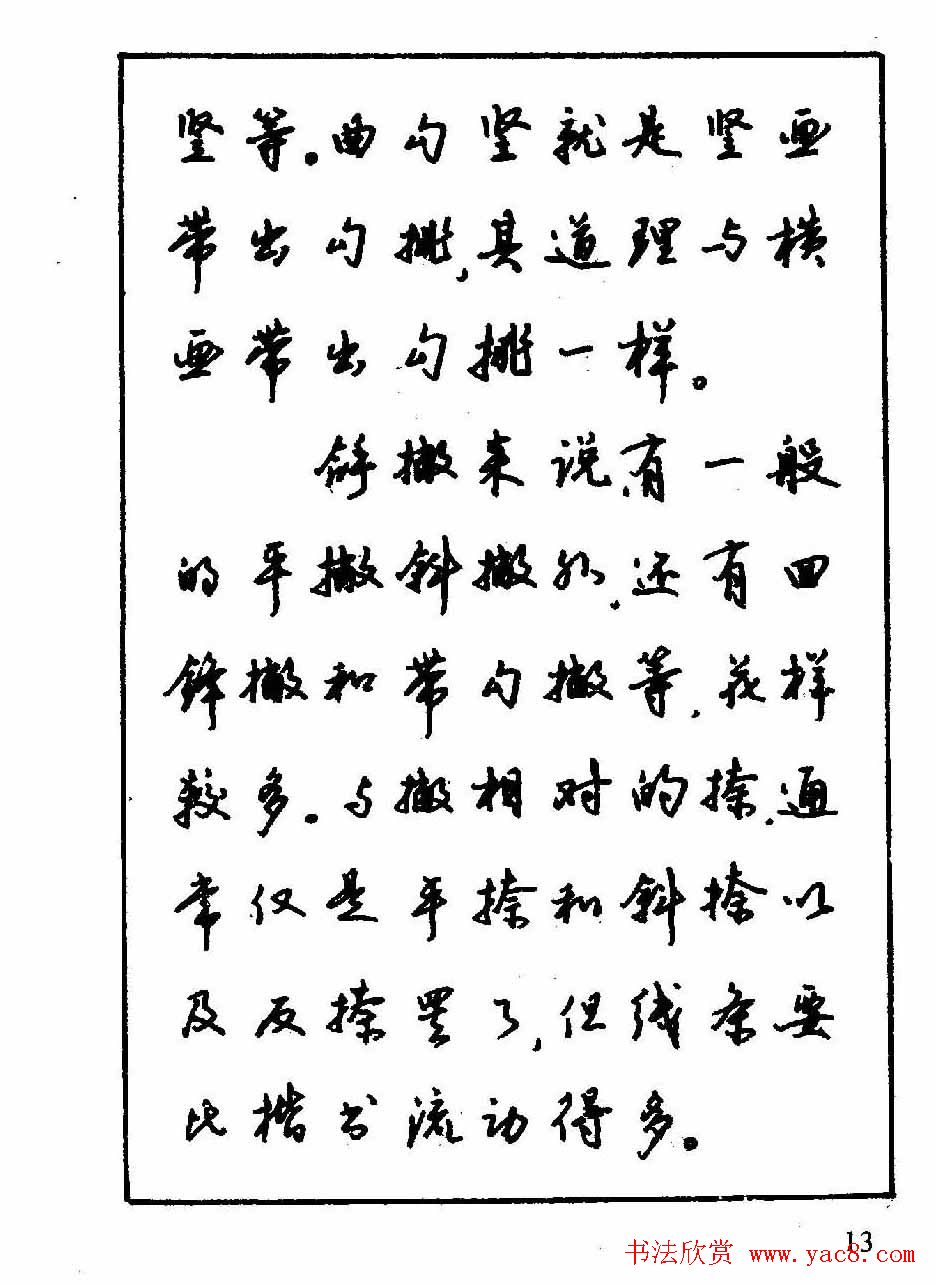 竖等。曲勾竖就是竖画
带出勾挑,其道理与横
画带出勾挑一样。
解撇来说,有一般
的平撇斜撇外,还有回
锋撇和带勾撇等,花样
较多。与撇相对的捺,通
常仅是平捺和斜捺以
及反捺罢了,但线条要
比楷书流动得多。
13
书法欣赏 www.yac8.com